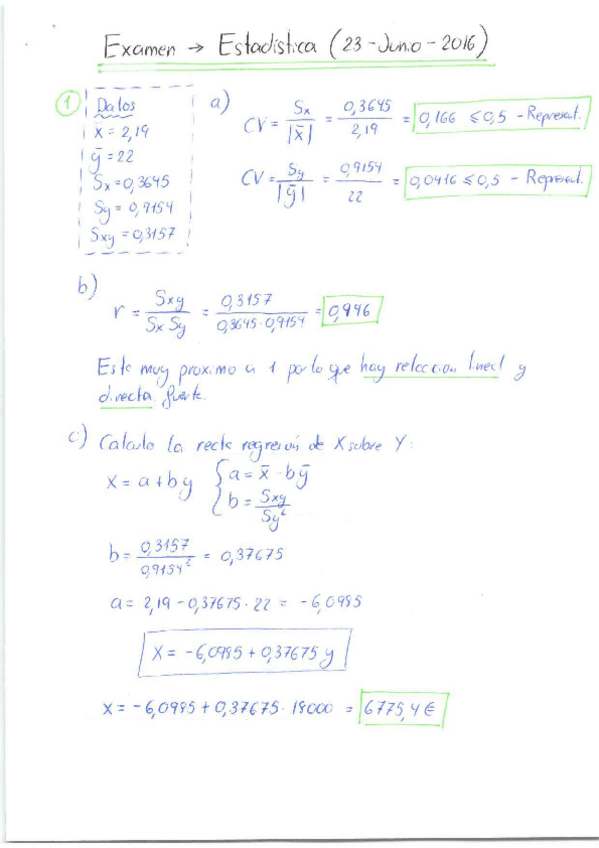 Examen → Estadística (23-Junio-2016)
1
Datos
x̄ = 2,19
ȳ = 22
Sx = 0,3645
Sy = 0,9154
Sxy = 0,3157
a) CV = Sx / |x̄| = 0,3645 / 2,19 = 0,166 ≤ 0,5 - Represent.
CV = Sy / |ȳ| = 0,9154 / 22 = 0,0416 ≤ 0,5 - Represent.
b)
r = Sxy / Sx Sy = 0,3157 / 0,3645·0,9154 = 0,946
Esta muy proximo a 1 por lo que hay relaccion lineal y
directa fuerte.
c) Calculo la recta regresión de X sobre Y:
x = a + b y { a = x̄ - b ȳ
b = Sxy / Sy²
b = 0,3157 / 0,9154² = 0,37675
a = 2,19 - 0,37675 · 22 = -6,0985
x = -6,0985 + 0,37675 y
x = -6,0985 + 0,37675 · 18000 = 6775,4 €